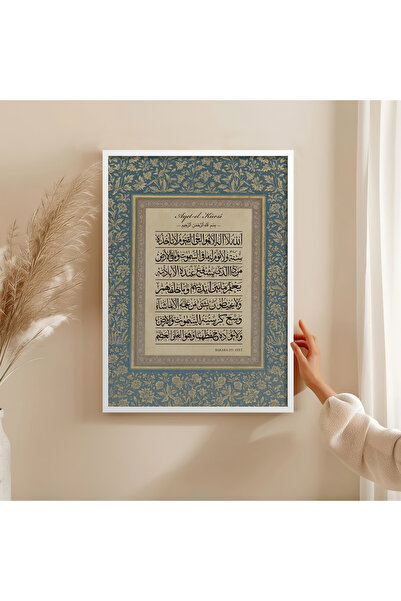 Ayet-el Kürsi
... بسم الله الرحمن الرحيم ...
الله لا اله الا هو الحي القيوم لا تأخذه
سنة ولا نوم له ما في السموات وما في الارض
من ذا الذي يشفع عنده الا باذنه
يعلم ما بين ايديهم وما خلفهم
ولا يحيطون بشيء من علمه الا بما شاء
وسع كرسيه السموات والارض
ولا يؤده حفظهما وهو العلي العظيم
BAKARA 255. AYET